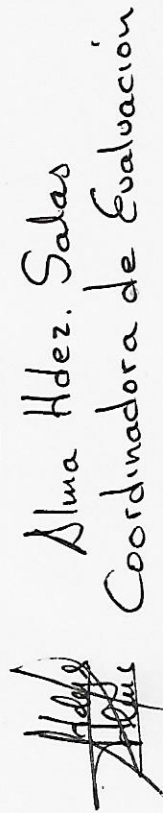 Alma Hdez. Salas
Coordinadora de Evaluación